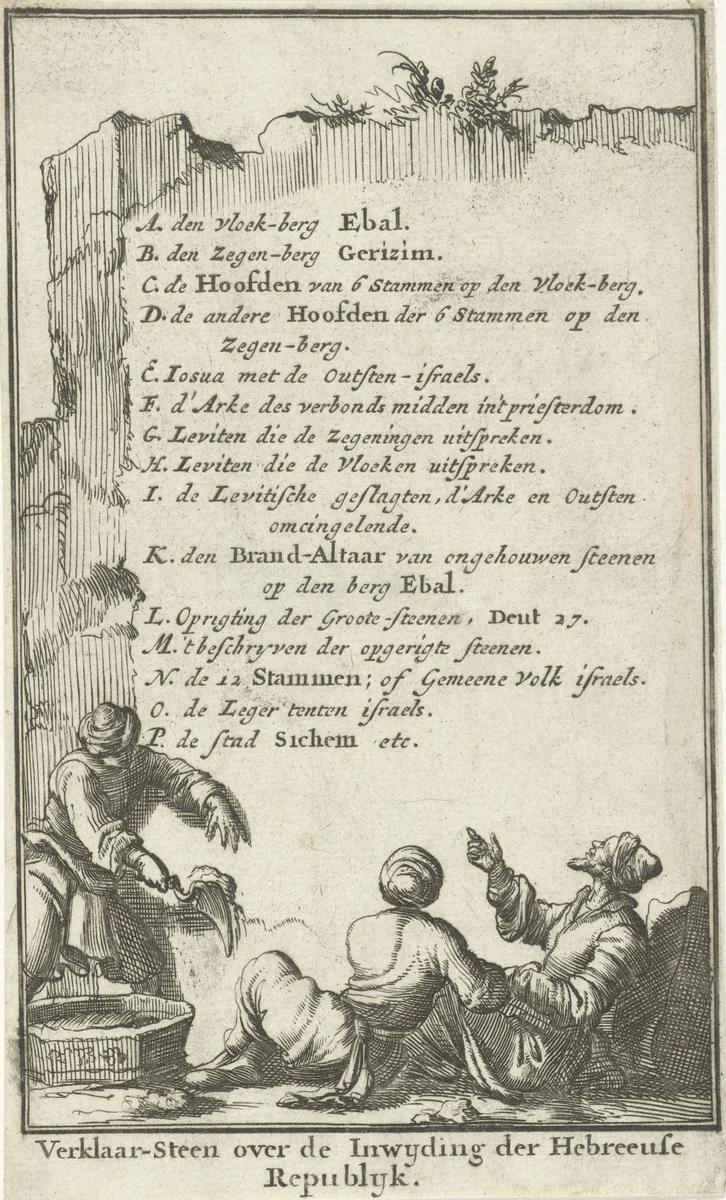 A. den vloek-berg Ebal.
B. den Zegen-berg Gerizim.
C. de Hoofden van 6 Stammen op den Vloek-berg.
D. de andere Hoofden der 6 Stammen op den
Zegen-berg.
E. Iosua met de Outſten-iſraels.
F. d'Arke des verbonds midden int prieſterdom.
G. Leviten die de Zegeningen uitſpreken.
H. Leviten die de Vloeken uitſpreken.
I. de Levitiſche geſlagten, d'Arke en Outſten
omcingelende.
K. den Brand-Altaar van ongehouwen ſteenen
op den berg Ebal.
L. Oprigting der Groote-ſteenen, Deut 27.
M. 't beschryven der opgerigte ſteenen.
N. de 12 Stammen; of Gemeene Volk iſraels.
O. de Leger tenten iſraels.
P. de ſtad Sichem etc.
Verklaar-Steen over de Inwyding der Hebreeuſe
Republyk.